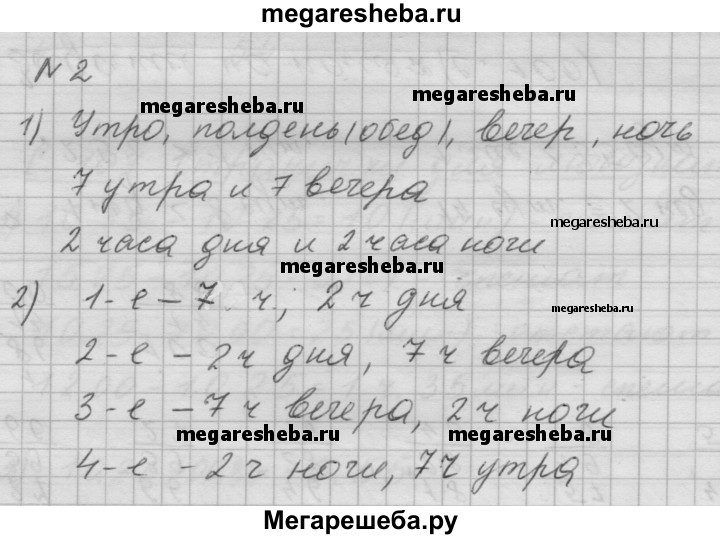 megaresheba.ru
N 2
megaresheba.ru
megaresheba.ru
1) Утро, полдень (обед), вечер, ночь
7 утра и 7 вечера
megaresheba.ru
2 часа дня и 2 часа ночи
megaresheba.ru
2) 1-е – 7 ч., 2 ч дня
megaresheba.ru
2-е – 2 ч дня, 7 ч вечера
3-е – 7 ч вечера, 2 ч ночи
megaresheba.ru
megaresheba.ru
4-е – 2 ч ночи, 7 ч утра
Мегарешеба.ру